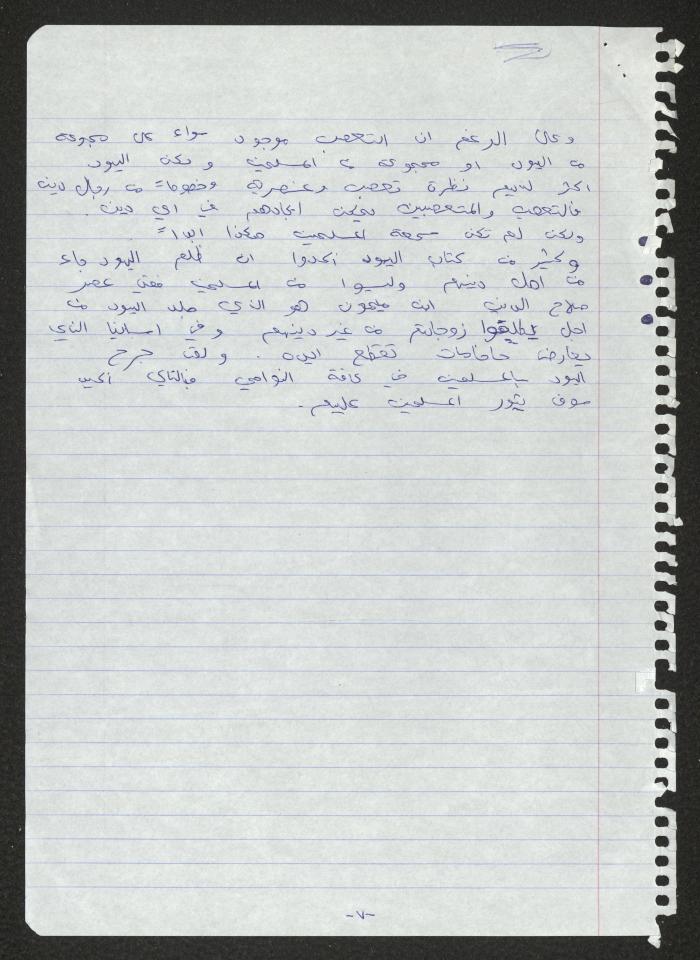 وعلى الرغم ان التعصب موجود سواء على مجموعة
من اليهود او مجموعة من المسلمين ولكن اليهود
اكثر لديهم نظرة تعصب وعنصرية وخصوصاً من رجال دين
فالتعصب والمتعصبين يمكن ايجادهم في اي دين.
ولكن لم تكن سمعة المسلمين هكذا ابداً.
وكثير من كتاب اليهود اكدوا ان ظلم اليهود جاء
من اهل دينهم وليسوا من المسلمين ففي عصر
صلاح الدين ابن ميمون هو الذي اليهود من
اجل يطلقوا زوجاتهم من غير دينهم وفي اسبانيا الذي
يعارض حاخامات تقطع اليده. ولقد جرح
اليهود بالمسلمين في كافة النواحي فبالتاي اكيد
سوف يثور المسلمين عليهم.
-٧-